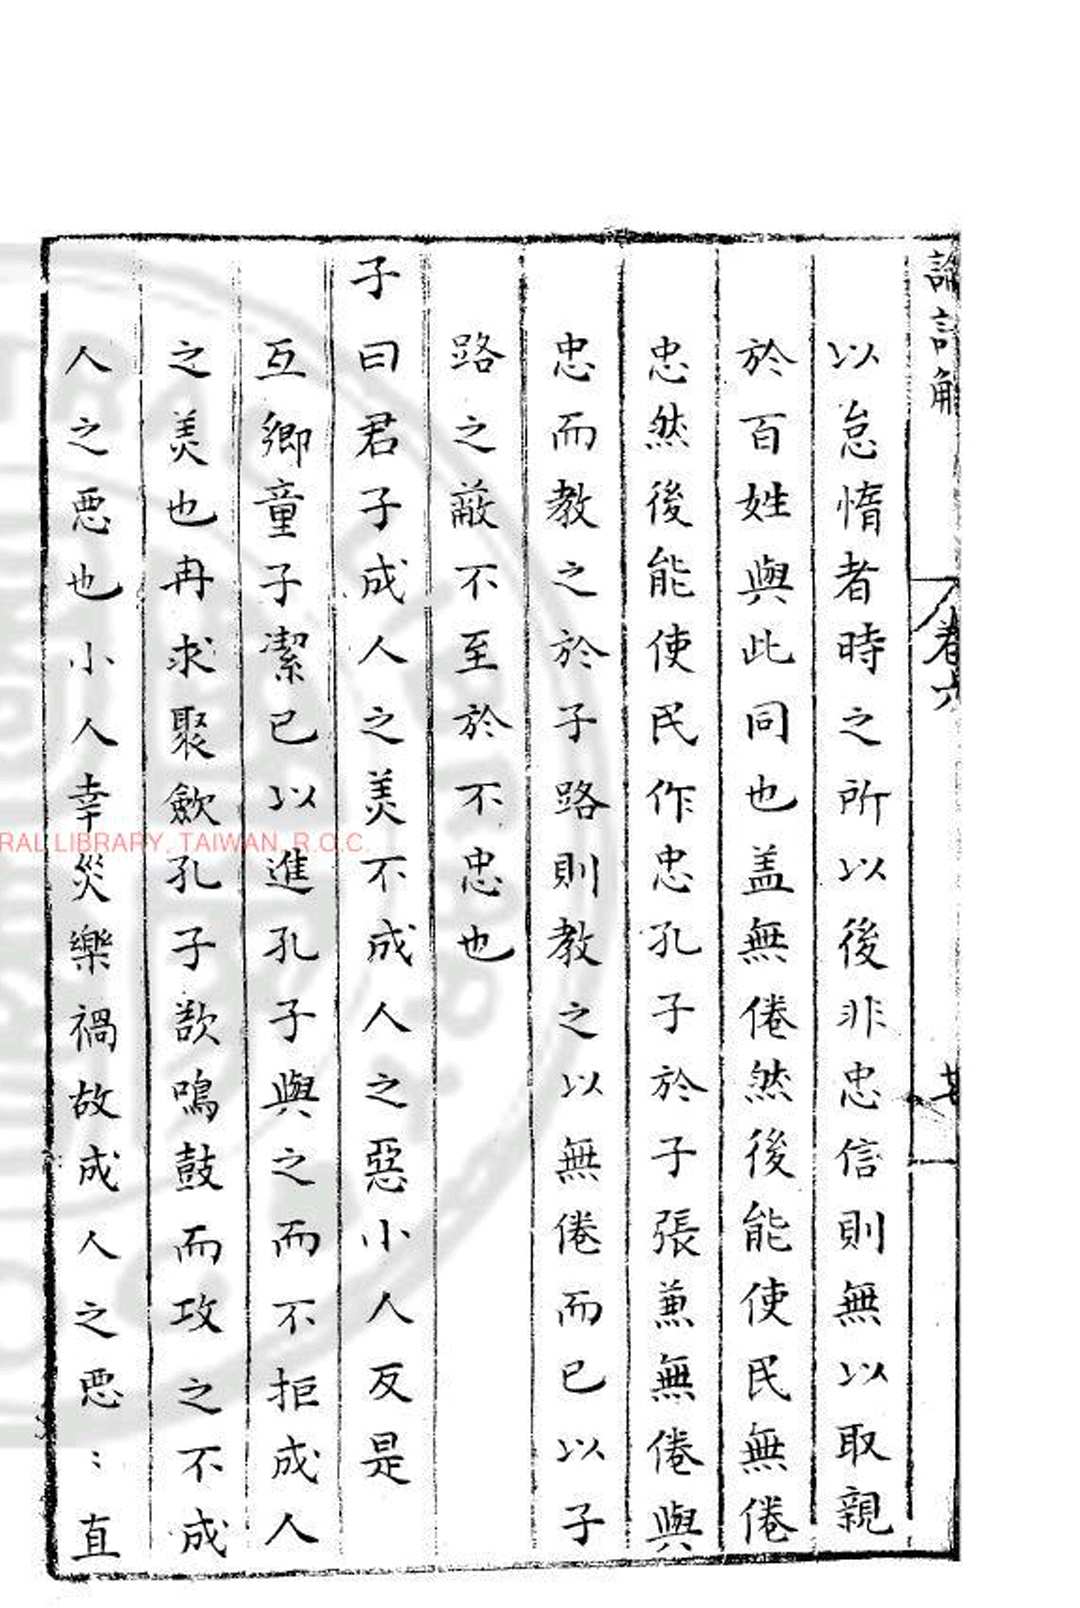 論語解 卷六
以怠惰者時之所以後非忠信則無以取親
於百姓與此同也盖無倦然後能使民無倦
忠然後能使民作忠孔子於子張兼無倦與
忠而教之於子路則教之以無倦而已以子
路之蔽不至於不忠也
子曰君子成人之美不成人之惡小人反是
互鄉童子潔已以進孔子與之而不拒成人
之美也冉求聚歛孔子欲鳴鼓而攻之不成
人之惡也小人幸災樂禍故成人之惡〻直
RAL LIBRARY, TAIWAN, R.O.C.